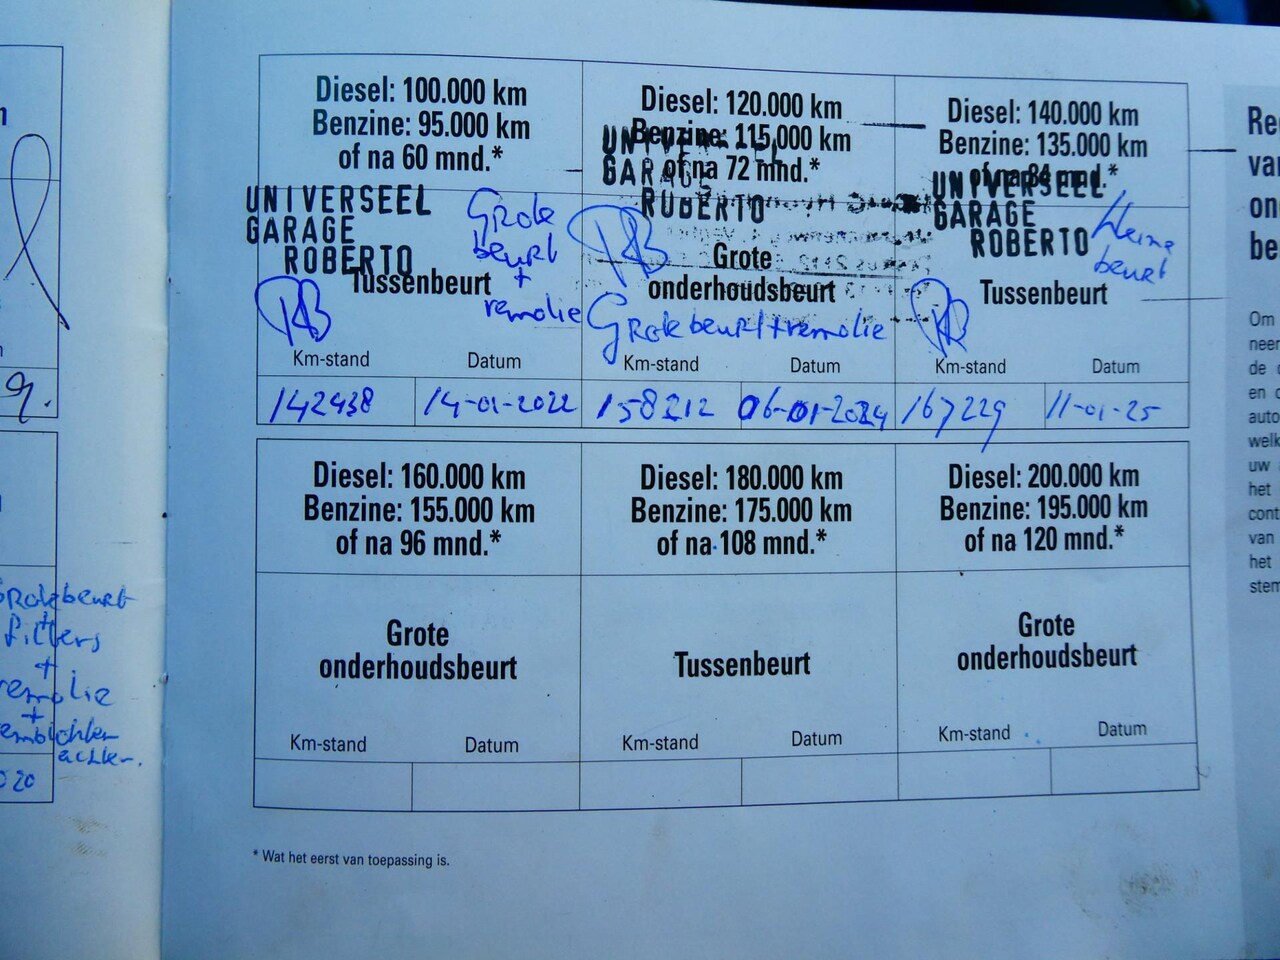 Diesel: 100.000 km
Benzine: 95.000 km
of na 60 mnd.*
UNIVERSEEL
GARAGE
ROBERTO
Grote
beurt
+
remolie
Tussenbeurt
Km-stand
Datum
142438
14-01-2022
Diesel: 120.000 km
Benzine: 115.000 km
of na 72 mnd.*
GARAGE
ROBERTO
Grote
onderhoudsbeurt
Grote beurt + remolie
Km-stand
Datum
158212
06-01-2024
Diesel: 140.000 km
Benzine: 135.000 km
of na 84 mnd.*
UNIVERSEEL
GARAGE
ROBERTO
kleine
beurt
Tussenbeurt
Km-stand
Datum
167229
11-01-25
Diesel: 160.000 km
Benzine: 155.000 km
of na 96 mnd.*
Grote
onderhoudsbeurt
Km-stand
Datum
Diesel: 180.000 km
Benzine: 175.000 km
of na 108 mnd.*
Tussenbeurt
Km-stand
Datum
Diesel: 200.000 km
Benzine: 195.000 km
of na 120 mnd.*
Grote
onderhoudsbeurt
Km-stand
Datum
* Wat het eerst van toepassing is.
Grote beurt
+
filters
+
remolie
+
achter.
Om
de
en
auto
welk
uw
het
cont
van
het
stem